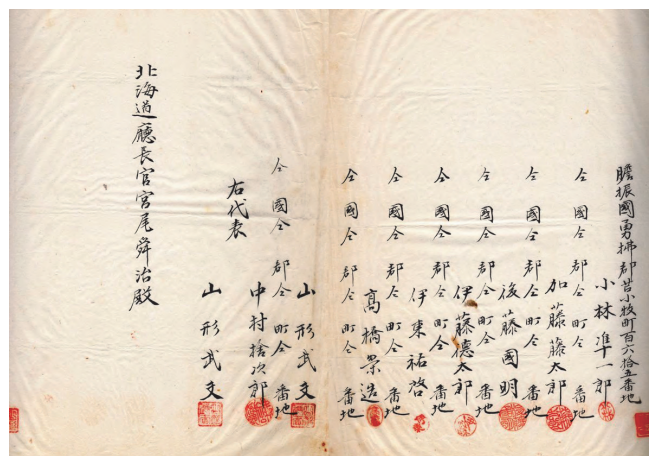 膽振國勇拂郡苫小牧町百六拾五番地
小林准一郎
仝國仝郡仝町仝番地
加藤藤太郎
仝國仝郡仝町仝番地
後藤國明
仝國仝郡仝町仝番地
伊藤德太郎
仝國仝郡仝町仝番地
伊東祐啓
仝國仝郡仝町仝番地
高橋榮造
仝國仝郡仝町仝番地
山形武文
仝國仝郡仝町仝番地
中村捨次郎
右代表
山形武文
北海道廳長官宮尾舜治殿